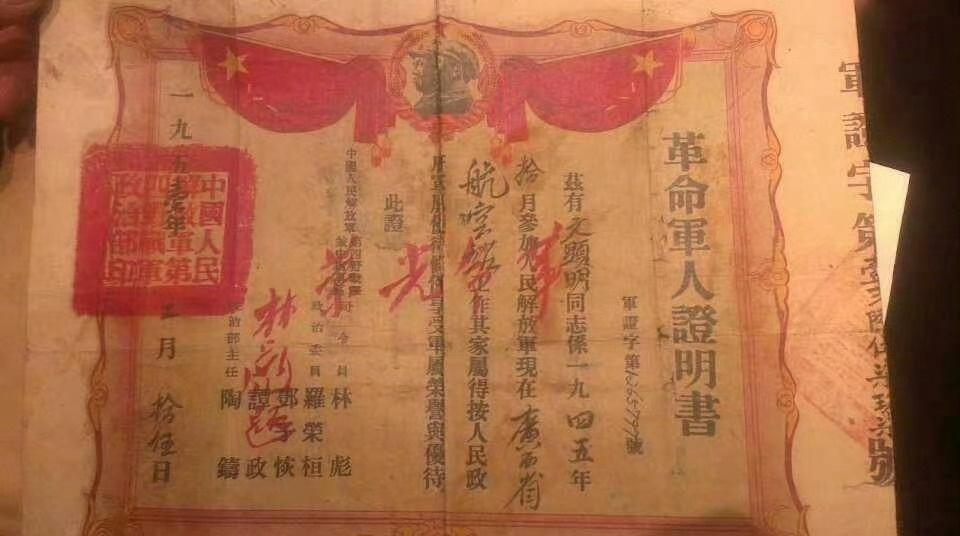 軍證字第
革命軍人證明書
軍證字第1265797號
茲有文顯明同志係一九四五年
拾月參加人民解放軍現在廣西省
航空站工作其家屬得按人民政
府軍屬優待條例享受軍屬榮譽與優待
此證
中國人民解放軍第四野戰軍
司令員 林彪
政治委員 羅榮桓
鄧子恢
譚政
政治部主任 陶鑄
光榮
林彪題
一九五壹年三月拾伍日
中國人民
解放軍第
四野戰軍
政治部印